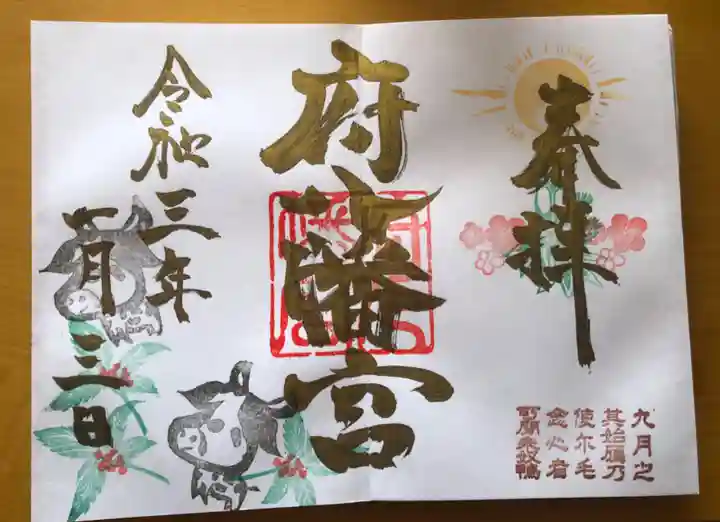 奉拝
九月之
其始鴈乃
使尓毛
念心者
所聞来奴鴨
府八幡宮
令和三年
一月三日